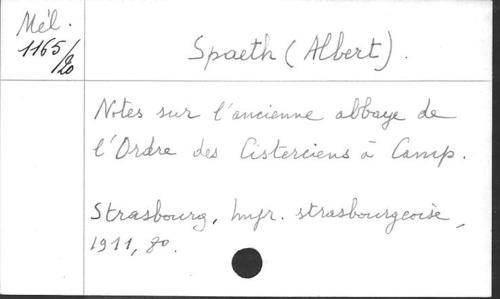 Mél.
1165/20
Spaeth (Albert).
Notes sur l'ancienne abbaye de
l'Ordre des Cisterciens à Camp.
Strasbourg, Impr. strasbourgeoise,
1911, 8o.